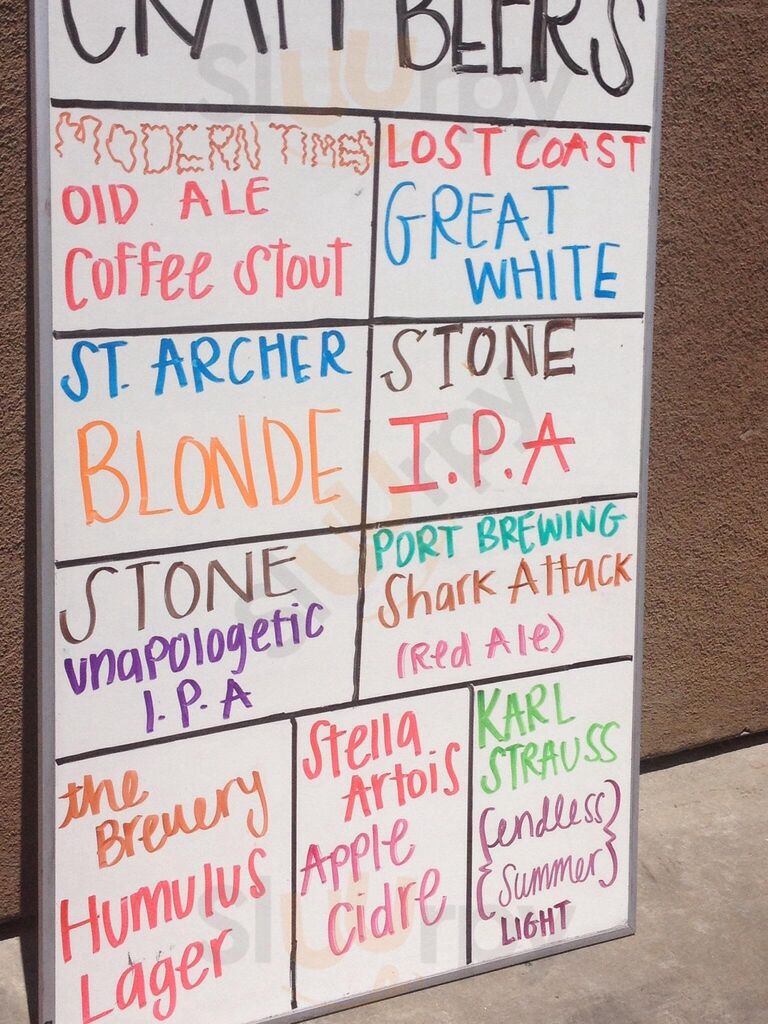 CRAFT BEERS
MODERN TIMES
OlD ALE
Coffee Stout
LOST COAST
GREAT
WHITE
ST. ARCHER
BLONDE
STONE
I.P.A
STONE
unapologetic
I.P.A
PORT BREWING
Shark Attack
(Red Ale)
the
Breuery
Humulus
Lager
Stella
Artois
Apple
Cidre
KARL
STRAUSS
{endless}
{Summer}
LIGHT
Sluurpy
Sluurpy
Sluurpy